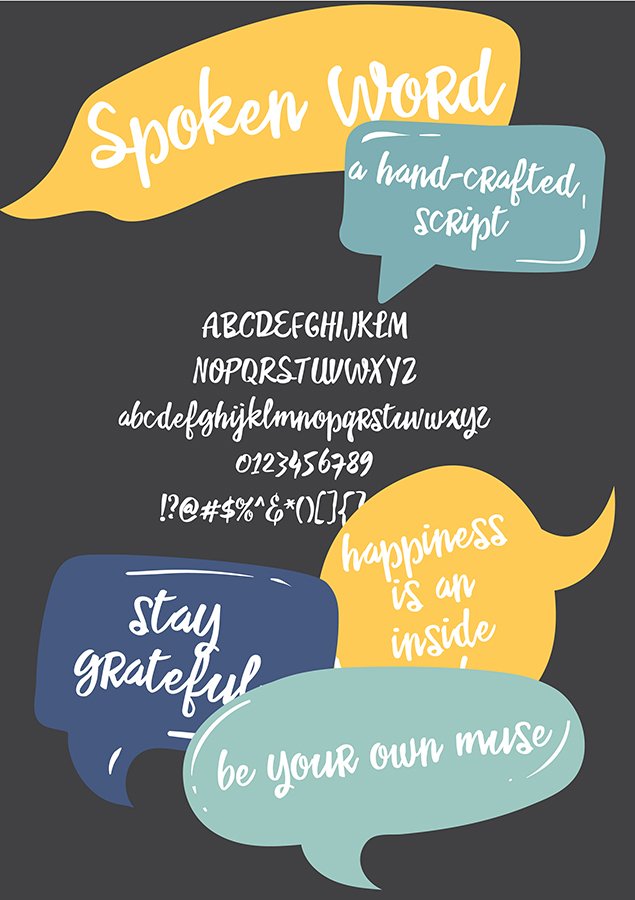 Spoken Word
a hand-crafted
script
ABCDEFGHIJKLM
NOPQRSTUVWXYZ
abcdefghijklmnopqrstuvwxyz
0123456789
!?@#$%^&*()[]{}
happiness
is an
inside
stay
grateful
be your own muse